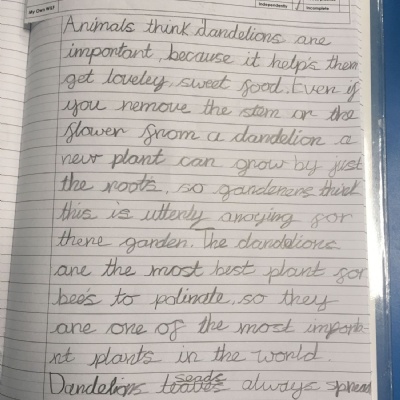 My Own WILF
Independently
Incomplete
Animals think dandelions are
important, because it help's them
get loveley, sweet food. Even if
you remove the stem or the
flower from a dandelion a
new plant can grow by just
the root's, so gardeners think
this is utterly anoying for
there garden. The dandelions
are the most best plant for
bee's to polinate, so they
are one of the most importa-
nt plants in the world.
seeds
Dandelions leaves always spread